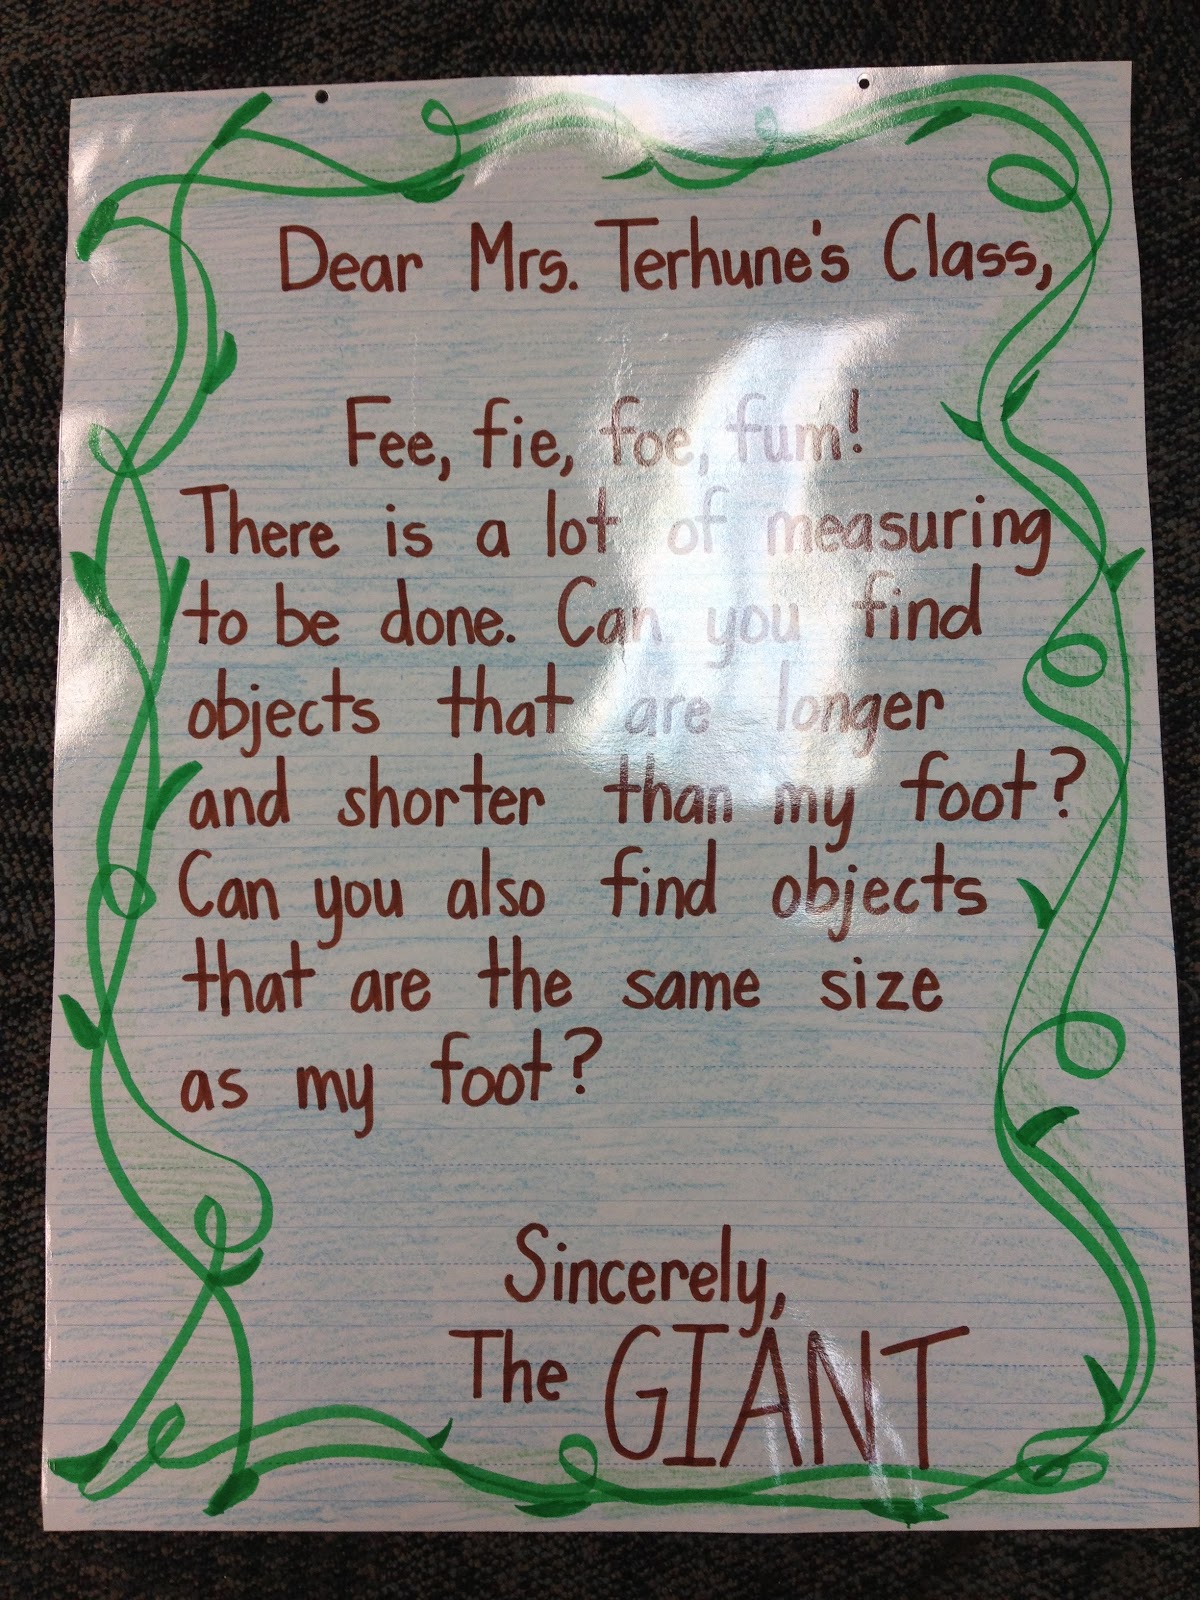 Dear Mrs. Terhune's Class,
Fee, fie, foe, fum!
There is a lot of measuring
to be done. Can you find
objects that are longer
and shorter than my foot?
Can you also find objects
that are the same size
as my foot?
Sincerely,
The GIANT